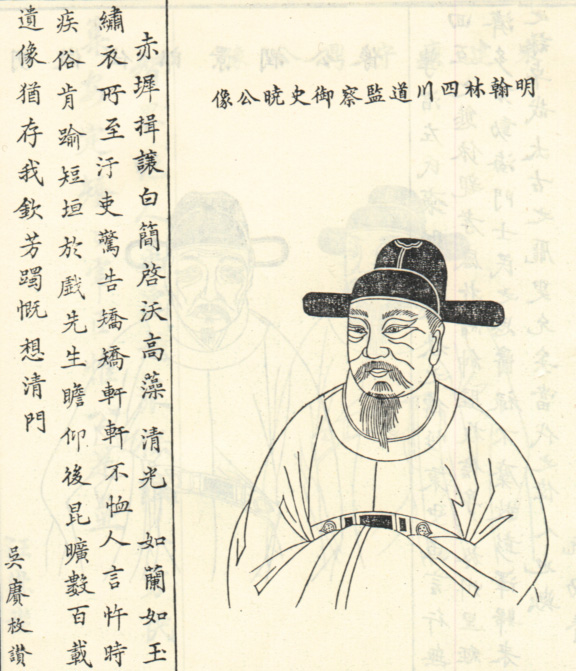 明翰林四川道監察御史曉公像
赤墀揖讓白簡啓沃高藻清光如蘭如玉
繡衣所至汙吏驚告矯矯軒軒不恤人言忤時
疾俗肯踰短垣於戲先生瞻仰後昆曠數百載
遺像猶存我欽芳躅慨想清門
吳賡枚讚